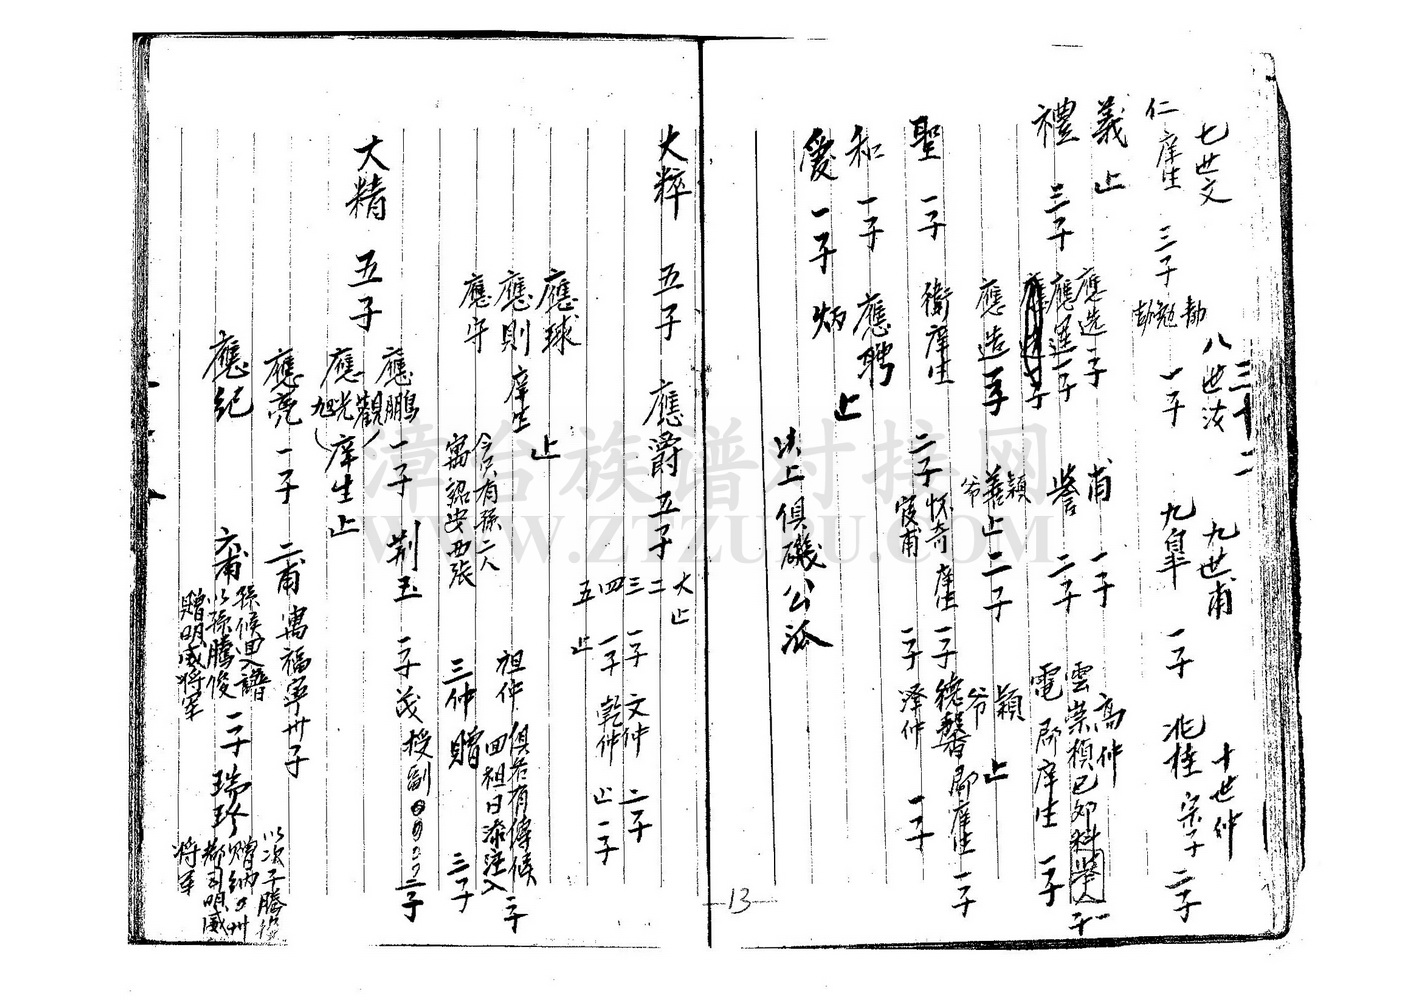 三十二
七世文 八世汝 九世甫 十世仲
仁 庠生 三子 勛 勉 勷 一子 九皐 一子 兆桂 宗子 二子
義 止
禮 三子 應選 一子 甫 一子 高仲
應運 一子 譽 二子 雲 崇禎己卯科舉人 一子
電 郡庠生 一子
應造 一子 義 止 二子 穎 爷 止
聖 一子 衛 庠生 二子 怀奇 庠生 一子 德馨 郡庠生 一子
俊甫 一子 澤仲 一子
和 一子 應聘 止
愛 一子 炳 止
以上俱磯公派
大粹 五子 應爵 五子 大 止
二
三 一子 文仲 二子
四 一子 乾仲 止 一子
五 止
應球 止
應則 庠生
應守 今只有孫二人 寓詔安西張 祖仲 俱君有傳候回祖日添注入 一子
三仲 贈 三子
大精 五子 應鵬 一子 荆玉 一子 茂 授副 二子
應觀
應光 旭 庠生 止
應亮 一子 二甫 寓福寧卅子
應紀 六甫 孫候回入譜 以孫騰俊 贈明威將軍 二子 瑞珍 以次子騰俊 贈 納 州 都司明威 將軍
13
漳台族谱对接网
WWW.ZTZUPU.COM